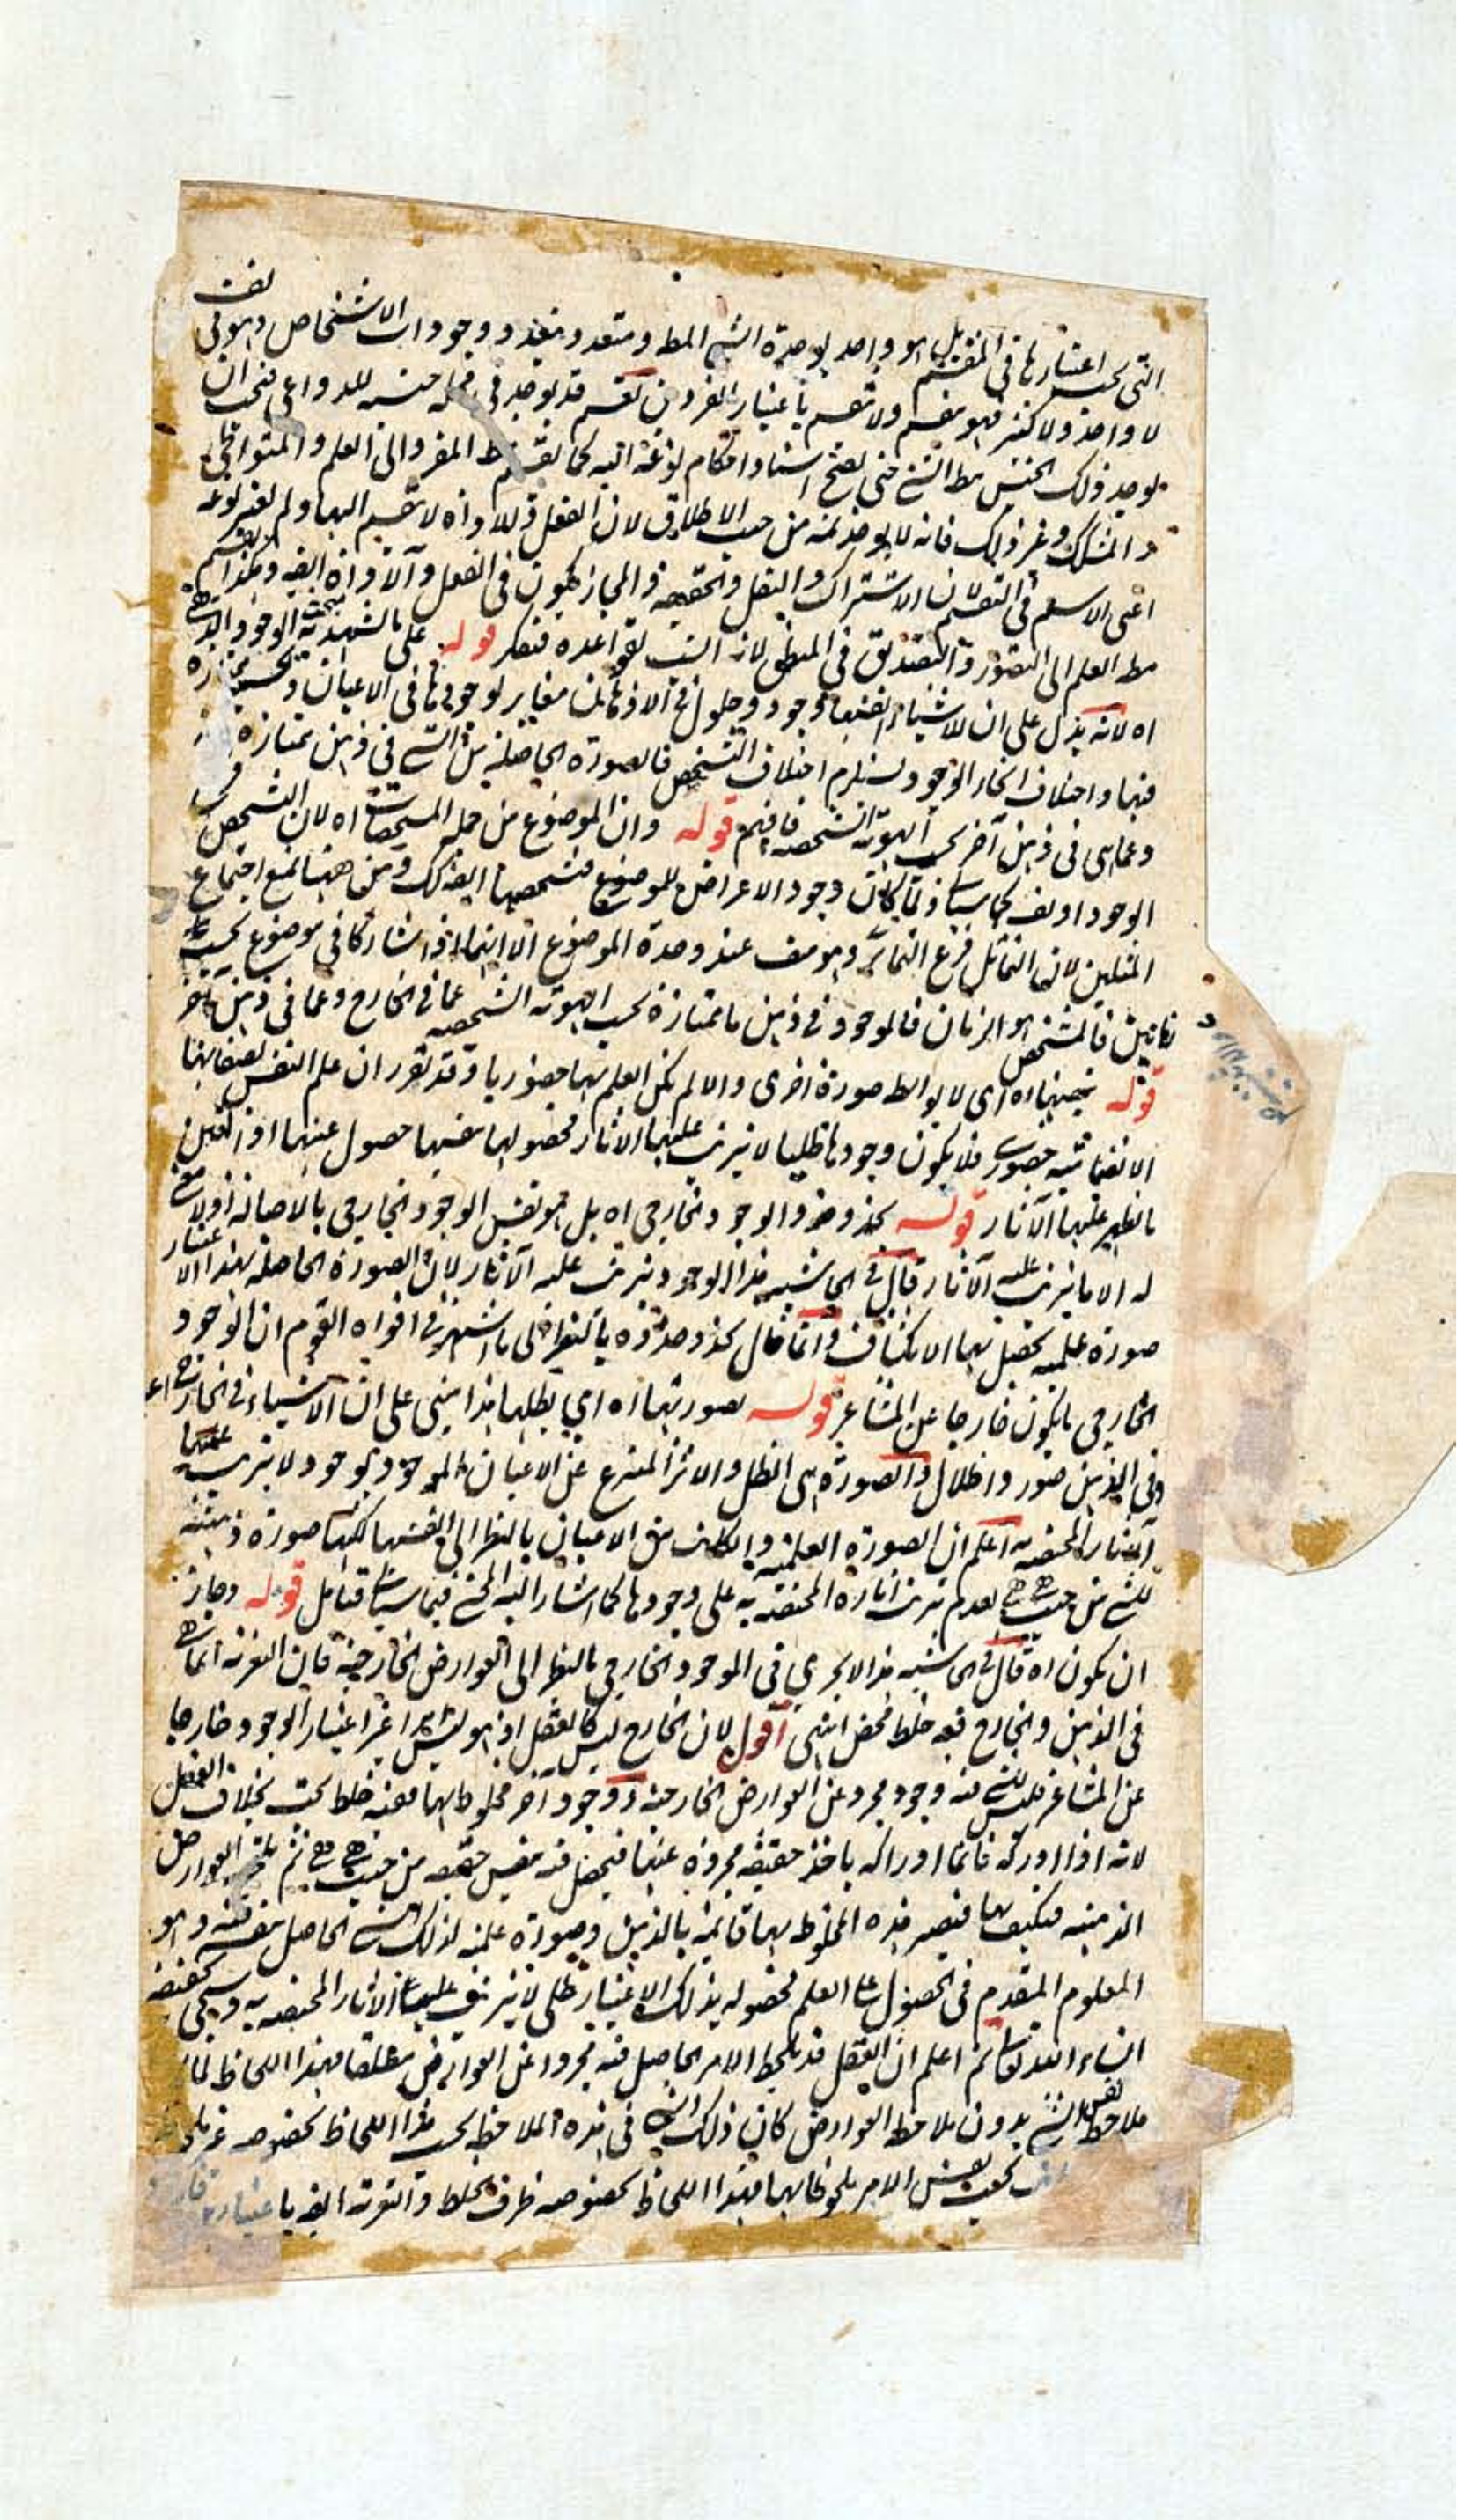 التي يجب اعتبارها في المقسم بل هو واحد لا وحدة الشيء المط ومتعدد بتعدد وجودات الاشخاص وهو في نفسه
لا واحد ولا كثير فهو مقسم ولا مقسم باعتبار الفردين نعم قد يوجد في جنسه للدواعي فيجب ان
يوجد ذلك الجنس مط الشيء حتى يصح اسناد احكام نوعه اليه كما المفرد الى العلم والمتواطي
والمشكك وغير ذلك فانه لا يوخذ ثمه من حيث الاطلاق لان الفعل والاداة لا تنقسم اليها ولم لنوعه
اعني الاسم في التقسيم لان الاشتراك والنقل والحقيقة والمجاز يكون في الفعل والاداة ايضا وهكذا ينقسم
مط العلم الى التصور والتصديق في المنطق لانه انسب لقواعده فتفكر قوله على ما يشهد به الوجود الذهني
اه لانه يدل على ان للاشياء انفسها وجود وحلول في الاذهان مغاير لوجودها في الاعيان
فيها واختلاف انحاء الوجود يستلزم اختلاف التشخص فالصورة الحاصلة من الشيء في ذهن ممتازة
وعما هي في ذهن آخر بحسب الهوية الشخصية فافهم قوله وان الموضوع من جملة المشخصات اه لان التشخص
الوجود او نفسه كما سيأتي ولما كان وجود الاعراض للموضوع فتشخصها ايضا كك ومن ههنا يمنع اجتماع
المثلين لان التماثل فرع التمايز وهو منتف عند وحدة الموضوع الا انهما اذا تشاركا في موضوع بحسب
زمانين فالمشخص هو الزمان فالموجود في ذهن ما ممتازة بحسب الهوية الشخصية عما في الخارج وعما في ذهن آخر
قوله بنفسها اه اي لا بواسطة صورة اخرى والا لم يكن العلم بها حضوريا وقد تقرر ان علم النفس بصفاتها
الانضمامية حضوري فلا يكون وجودها ظليا لا يترتب عليها الآثار فحصولها بنفسها حصول عينها
ما يظهر عليها الآثار قوله يحذو حذو الوجود الخارجي اه بل هو نفس الوجود الخارجي بالاصالة اذ لا معنى
له الا ما يترتب عليه الآثار قال في الحاشية هذا الوجود يترتب عليه الآثار لان الصورة الحاصلة بهذا الاعتبار
صورة علمية يحصل بها الانكشاف وانما قال يحذو حذوه بالنظر الى ما اشتهر في افواه القوم ان الوجود
الخارجي ما يكون خارجا عن المشاعر قوله بصورتها اه اي بظلها هذا يبنى على ان الاشياء في الخارج اعيان
وفي الذهن صور واظلال والصورة هي الظل والاثر المنتزع عن الاعيان الموجود بوجود لا يترتب عليها
الآثار المختصة اعلم ان الصورة العلمية وان كانت من الاعيان بالنظر الى نفسها لكنها صورة ذهنية
للشيء من حيث هي هي لعدم ترتب آثاره المختصة به على وجودها كما اشار اليه المحشي فيما سيأتي فتأمل قوله وجاز
ان يكون اه قال في الحاشية هذا لا يجري في الموجود الخارجي بالنظر الى العوارض الخارجية فان التعرية انما هي
في الذهن والخارج فيه خلط محض انتهى اقول لان الخارج ليس كالعقل اذ هو ليس امرا غير اعتبار الوجود خارجا
عن المشاعر فليس للشيء فيه وجود مجرد عن العوارض الخارجية ووجود آخر مخلوط بها ففيه خلط بحت بخلاف العقل
لانه اذا ادركه فانما ادراكه ياخذ حقيقة مجردة عنها فيحصل فيه نفس حقيقته من حيث هي هي ثم يلحقه العوارض
الذهنية فيكتنف بها فيصير هذه المخلوط بها قائمة بالذهن وصورة علمية لذلك الشيء الحاصل بنفسه فيه وهو
المعلوم المتقدم في الحصول على العلم فحصوله بذلك الاعتبار ظلي لا يترتب عليه الآثار المختصة به وسيجي تحقيقه
انشاء الله تعالى ثم اعلم ان العقل قد يلاحظ الامر الحاصل فيه مجردا عن العوارض مطلقا فهذا اللحاظ
ملاحظة نفس الشيء بدون ملاحظة العوارض كان ذلك الشيء في هذه الملاحظة بحسب هذا اللحاظ بخصوصه غير
بحسب نفس الامر مخلوطا بها فهذا اللحاظ بخصوصه ظرف الخلط والتعرية ايضا باعتبارين